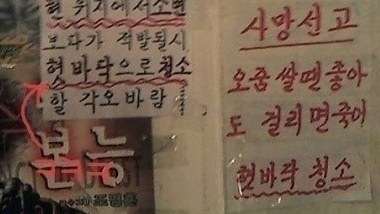 현 위치에서소변
보다가 적발될시
혓바닥으로청소
할 각오바람
본능
사망선고
오줌 쌀땐좋아
도 걸리면죽어
혓바닥 청소